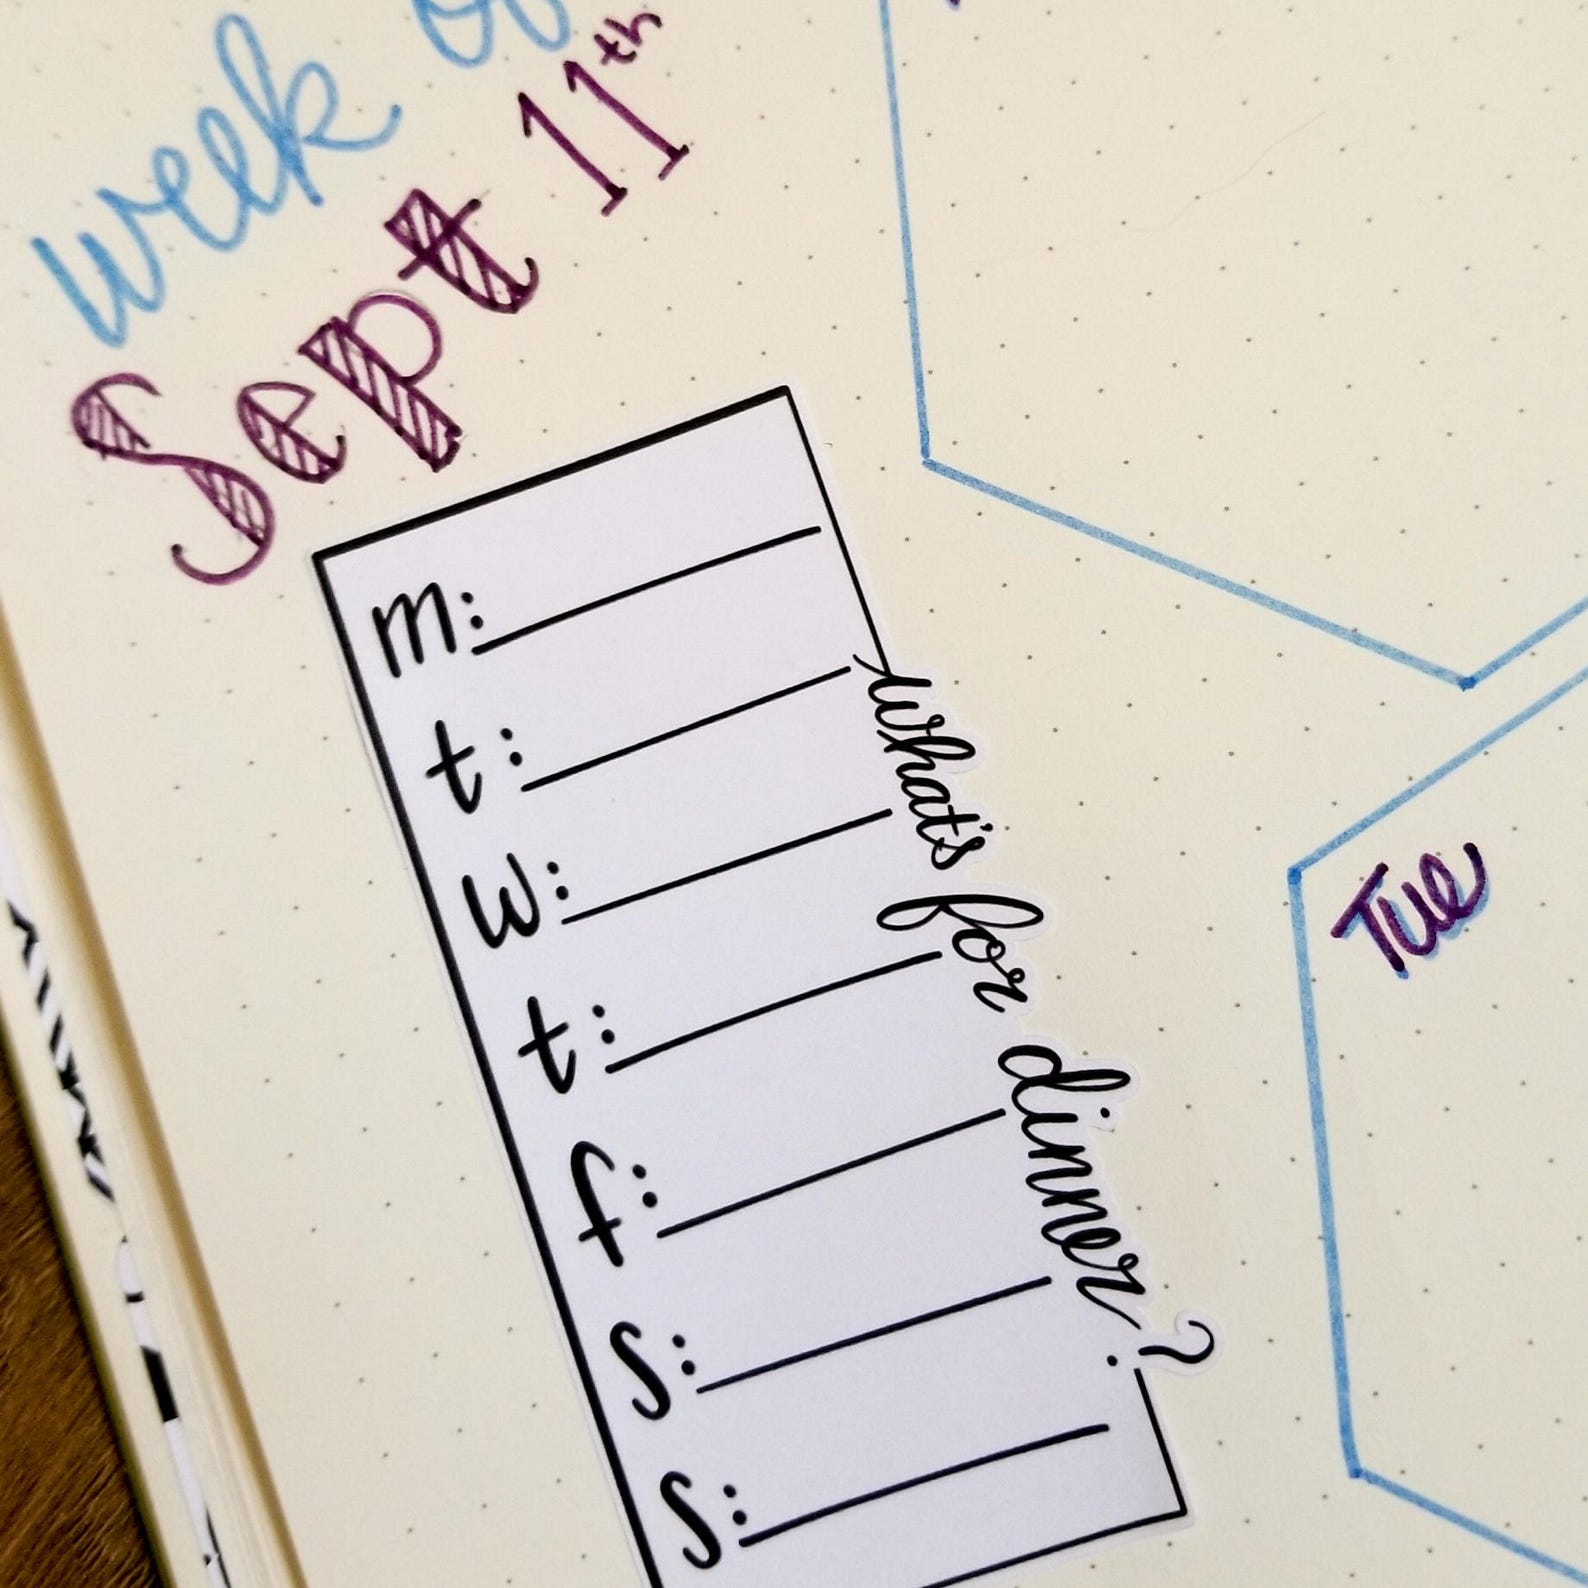 week of
Sept 11th
m:
t:
w:
t:
f:
s:
s:
what's for dinner?
Tue